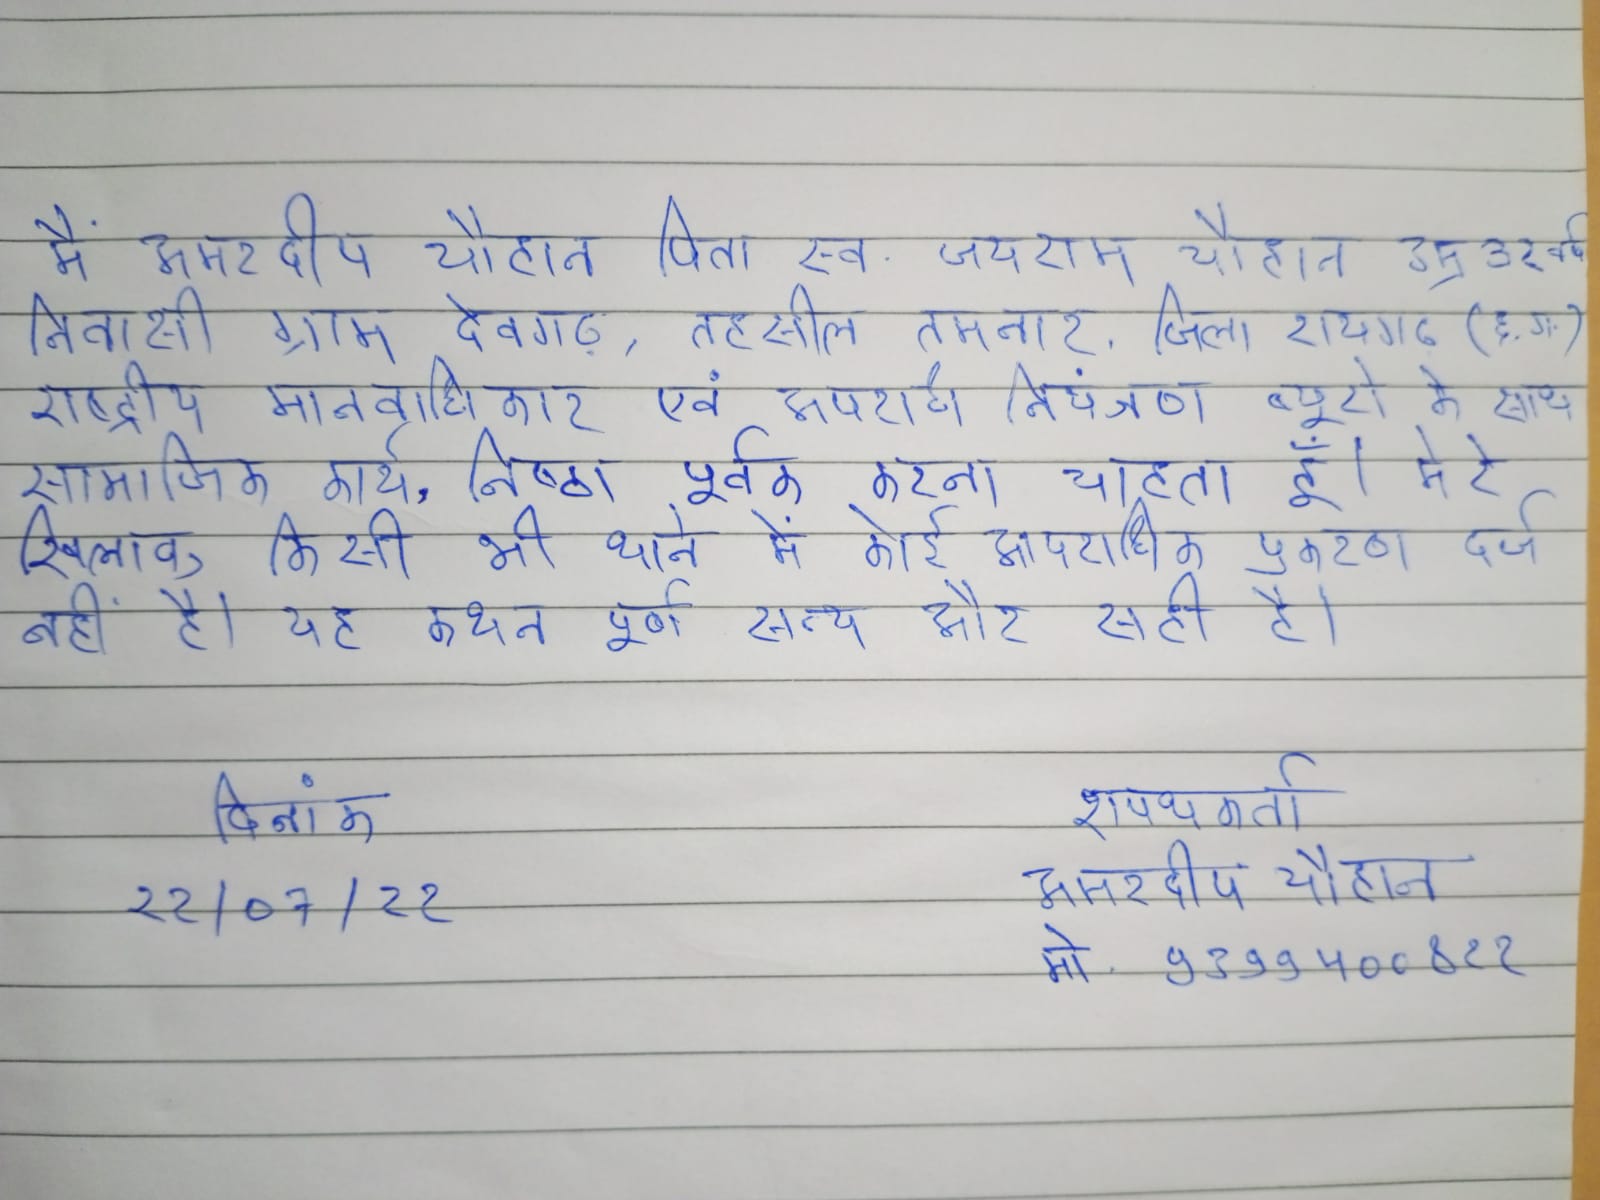 मैं अमरदीप चौहान पिता स्व. जयराम चौहान उम्र 32 वर्ष
निवासी ग्राम देवगढ़, तहसील तमनार, जिला रायगढ़ (छ.ग.)
राष्ट्रीय मानवाधिकार एवं अपराध नियंत्रण ब्यूरो के साथ
सामाजिक कार्य, निष्ठा पूर्वक करना चाहता हूँ। मेरे
खिलाफ किसी भी थाने में कोई आपराधिक प्रकरण दर्ज
नहीं है। यह कथन पूर्ण सत्य और सही है।
दिनांक
22/07/22
शपथकर्ता
अमरदीप चौहान
मो. 9399400822